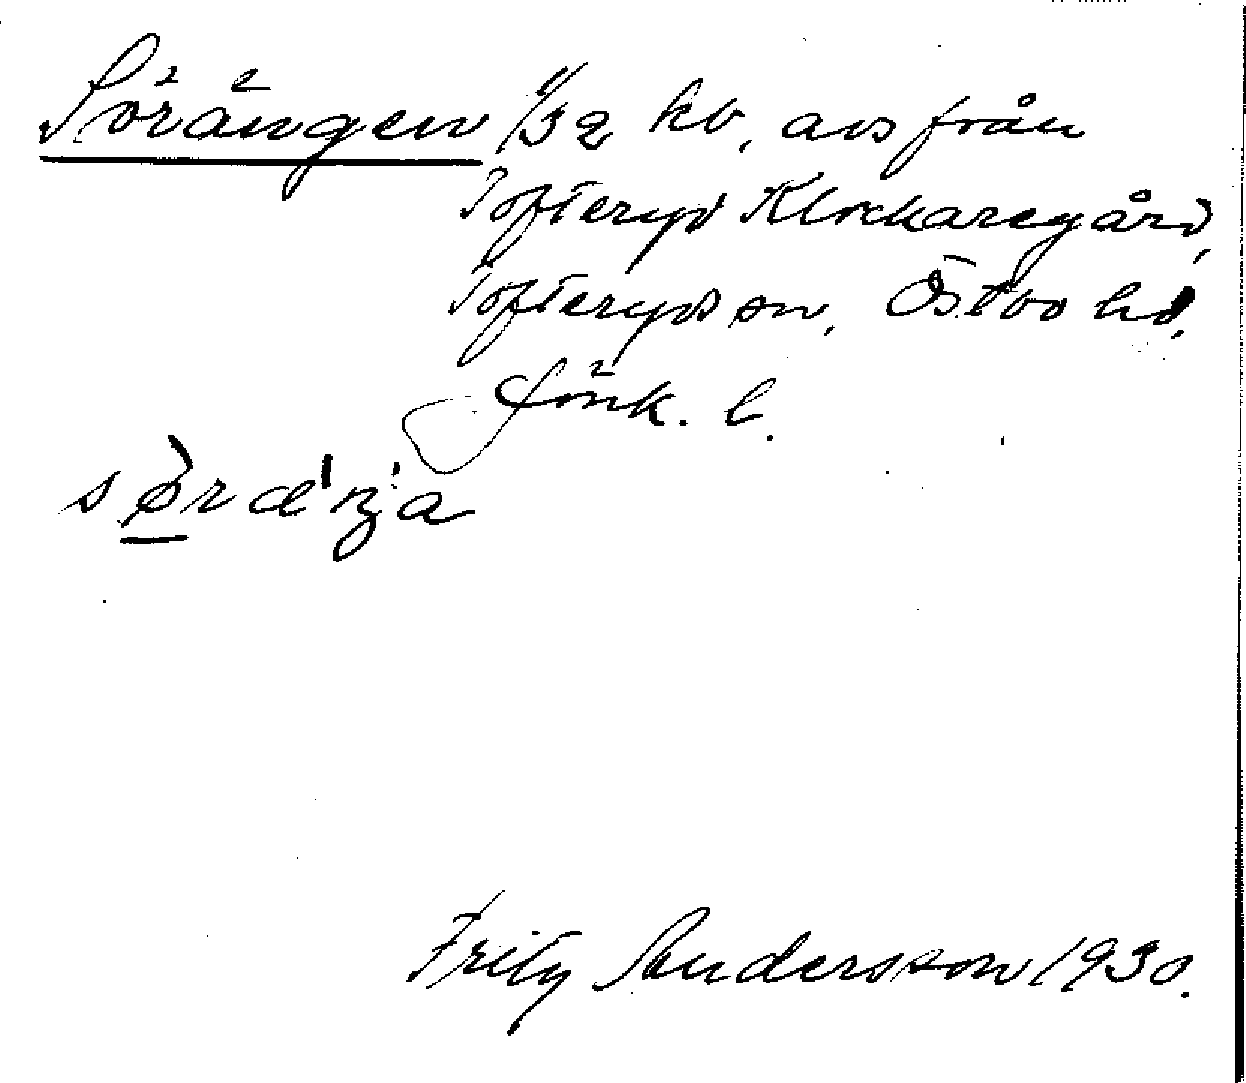 Sörängen 1/32 kb, avs från
Tofteryd Klockaregård,
Tofteryds sn, Östbo hd,
Jönk. l.
sø̀ræ'ŋa
Fritz Andersson 1930.